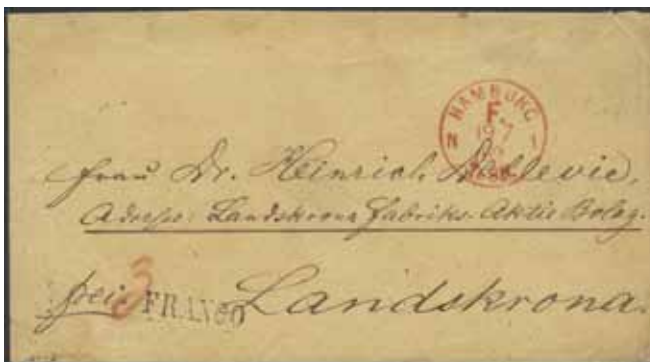 HAMBURG
F.
19 7
N 1
Frau Dr. Heinrich
Adresse: Landskrona Fabriks-Aktie Bolag.
frei. 3 FRANCO Landskrona.